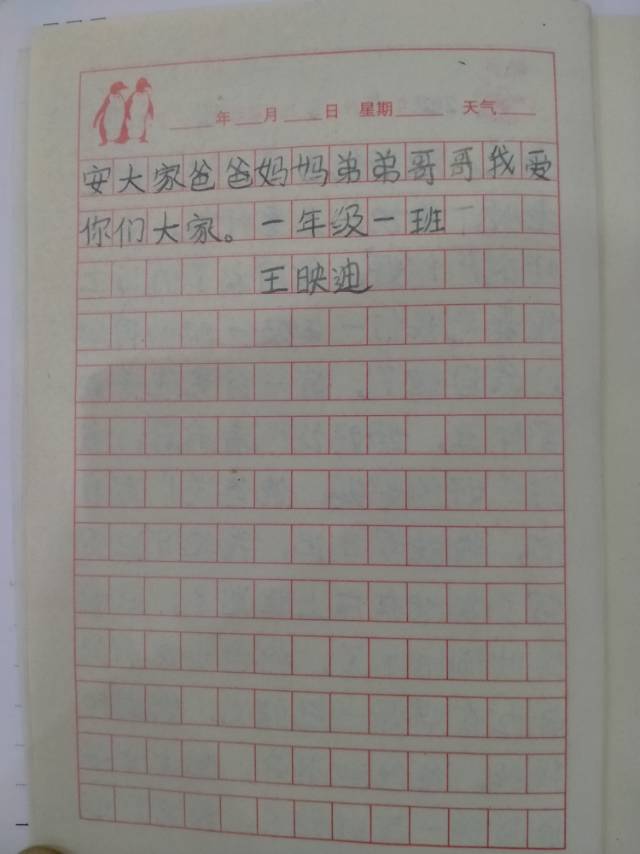 年 月 日 星期 天气
安大家爸爸妈妈弟弟哥哥我爱
你们大家。一年级一班
王映迪